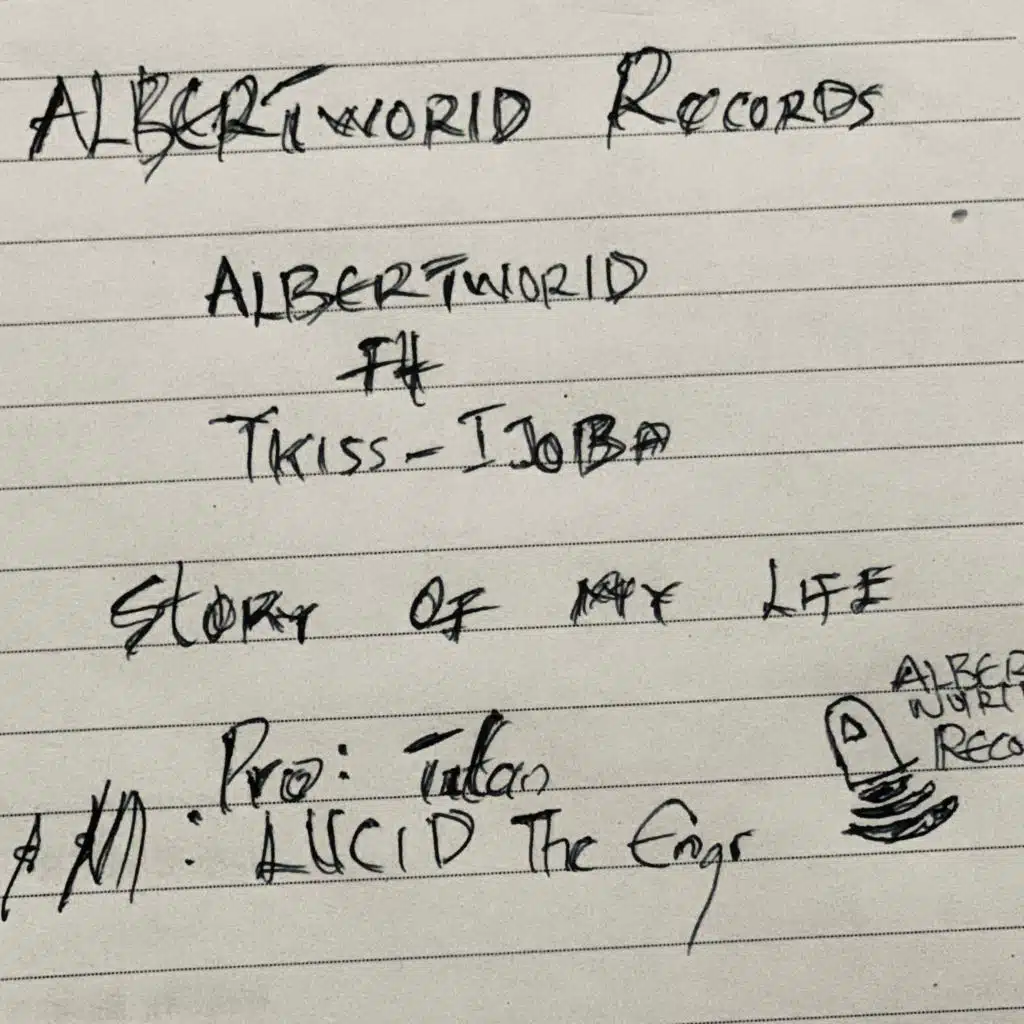 ALBERTWORLD RECORDS
ALBERTWORLD
Ft
TKISS-IJOBA
STORY OF MY LIFE
ALBER
WORL
RECO
Pro:
LUCID The Engr